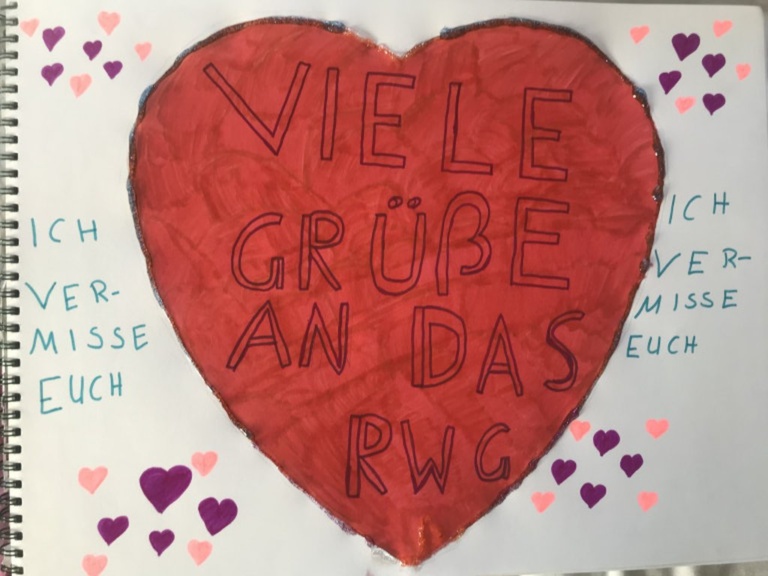 VIELE
GRÜßE
AN DAS
RWG
ICH
VER-
MISSE
EUCH
ICH
VER-
MISSE
EUCH